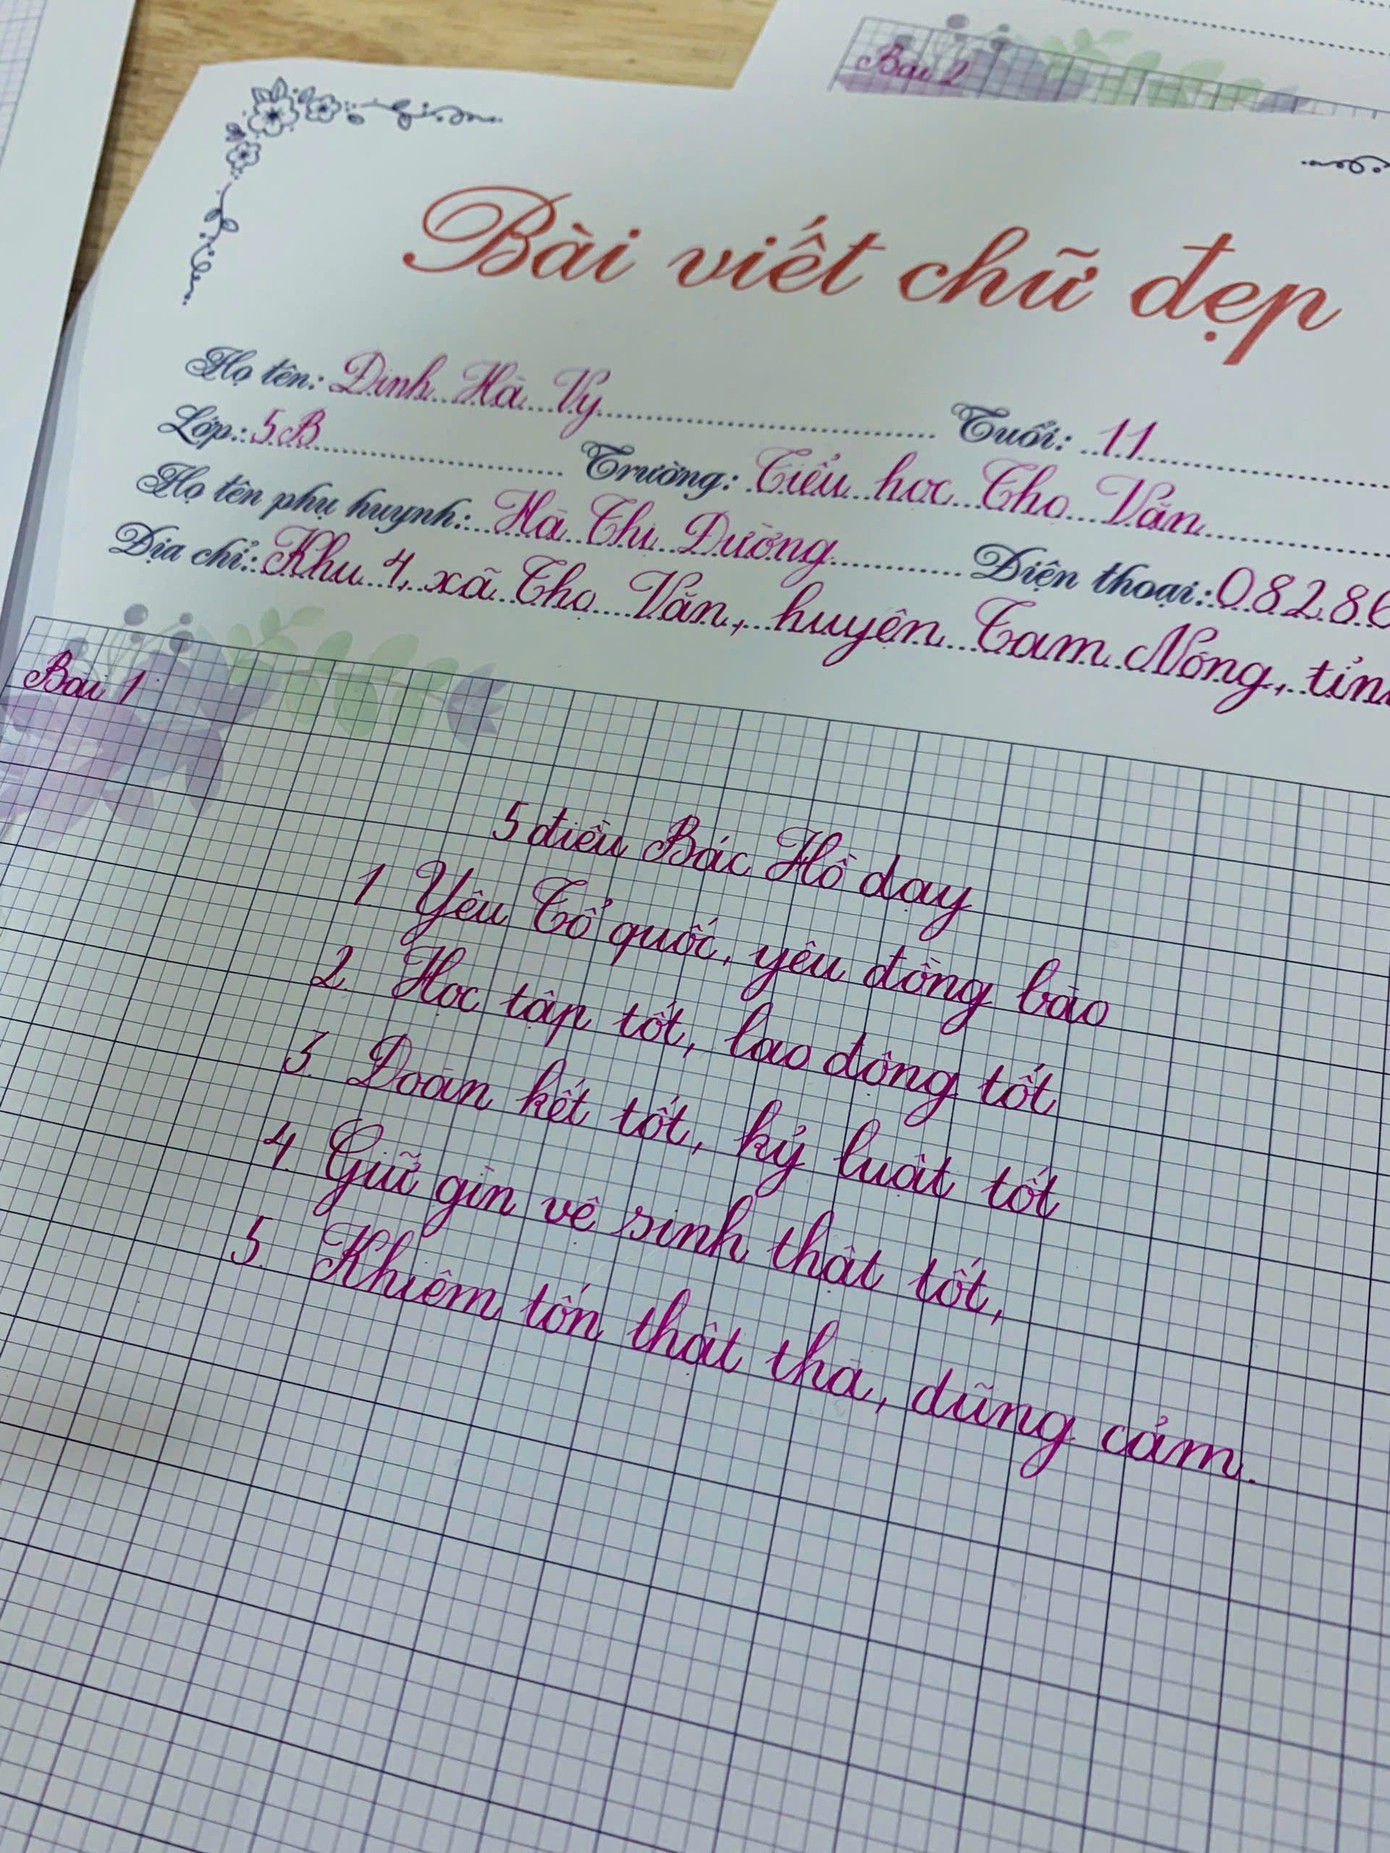 Bài 2
Bài viết chữ đẹp
Họ tên: Đinh Hà Vy Tuổi: 11
Lớp: 5B Trường: Tiểu học Thọ Văn
Họ tên phụ huynh: Hà Thị Dường Điện thoại: 08286
Địa chỉ: Khu 4, xã Thọ Văn, huyện Tam Nông, tỉn
Bài 1
5 điều Bác Hồ dạy
1 Yêu Tổ quốc, yêu đồng bào
2. Học tập tốt, lao động tốt
3. Đoàn kết tốt, kỷ luật tốt
4. Giữ gìn vệ sinh thật tốt,
5. Khiêm tốn thật thà, dũng cảm.